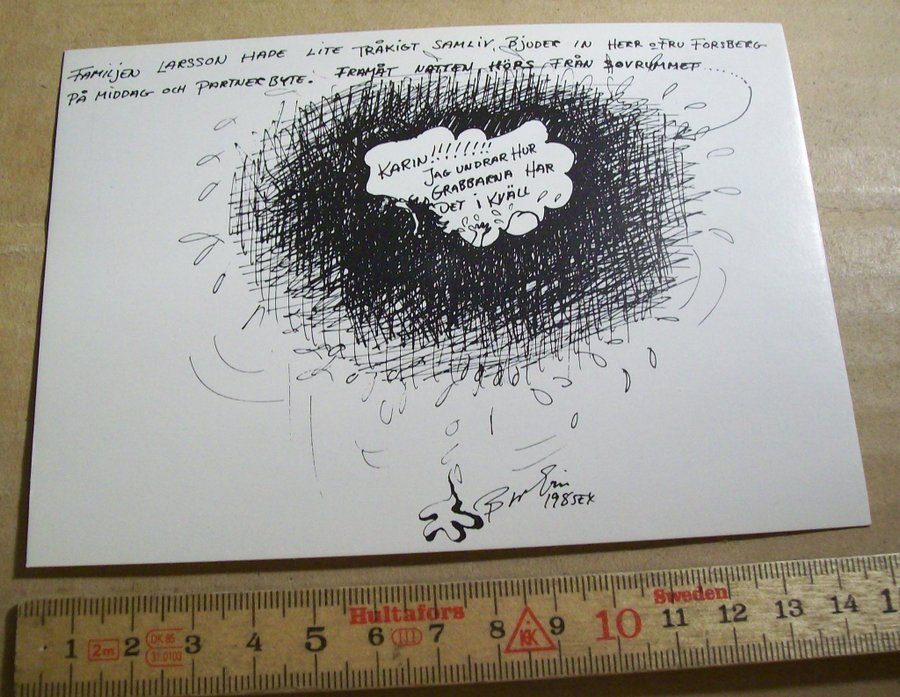 FAMILJEN LARSSON HADE LITE TRÅKIGT SAMLIV, BJUDER IN HERR o FRU FORSBERG
PÅ MIDDAG OCH PARTNERBYTE. FRAMÅT NATTEN HÖRS FRÅN SOVRUMMET......
KARIN!!!!!!!!
JAG UNDRAR HUR
GRABBARNA HAR
DET I KVÄLL
198SEX
Hultafors Sweden
1 2m 2 DK 85 3 4 5 6 7 8 9 10 11 12 13 14 1
31.0103